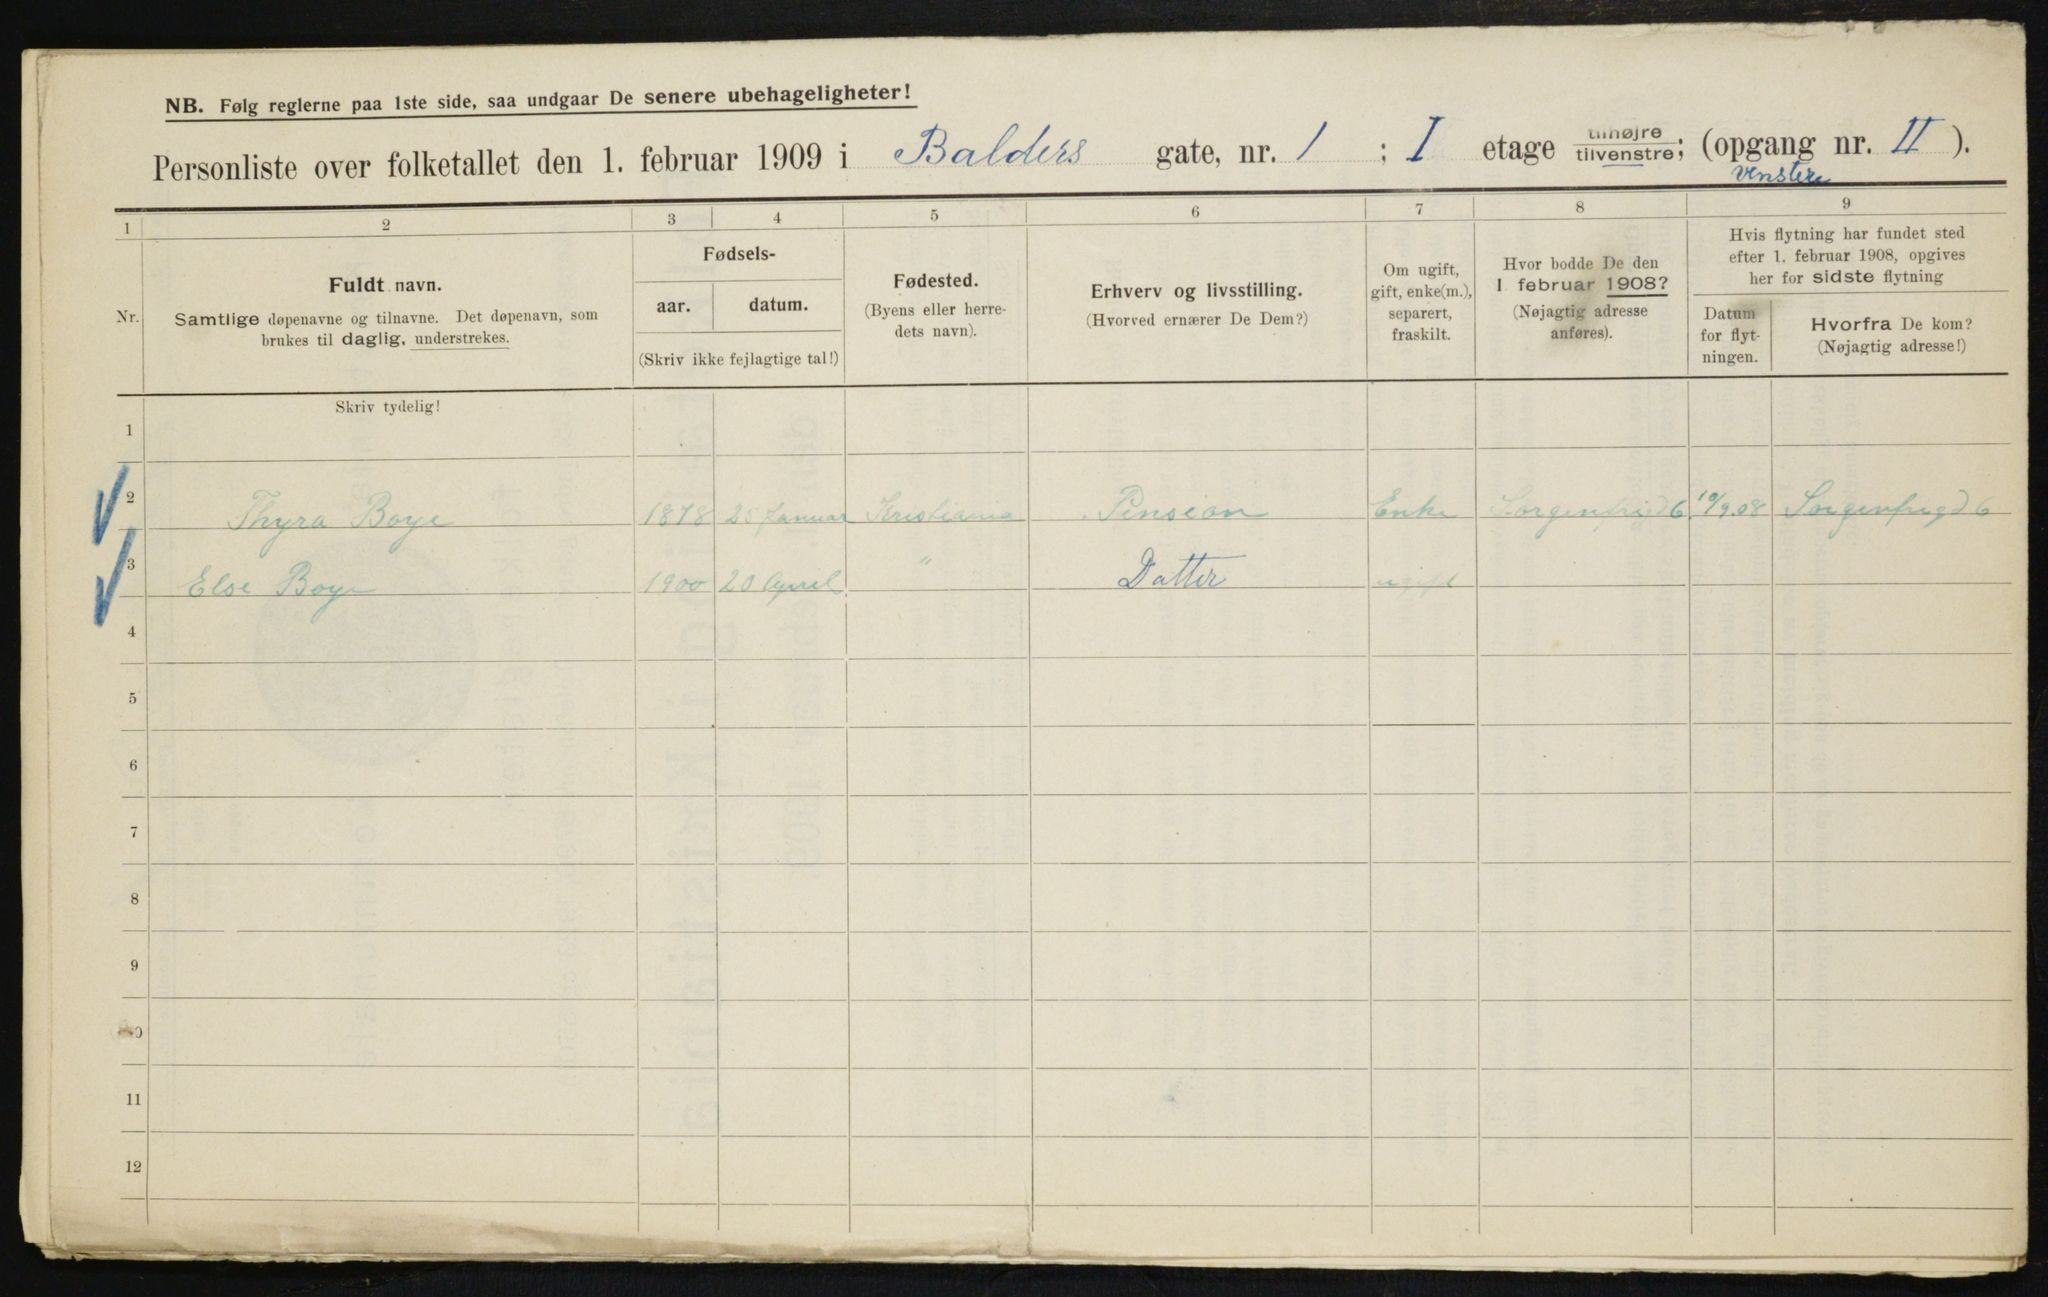 NB. Følg reglerne paa 1ste side, saa undgaar De senere ubehageligheter!
Personliste over folketallet den 1. februar 1909 i Balders gate, nr. 1 ; I etage tilhøjre tilvenstre; (opgang nr. II ).
venstre
1 2 3 4 5 6 7 8 9
Nr.
Fuldt navn.
Samtlige døpenavne og tilnavne. Det døpenavn, som
brukes til daglig, understrekes.
Fødsels-
aar. datum.
(Skriv ikke fejlagtige tal!)
Fødested.
(Byens eller herre-
dets navn).
Erhverv og livsstilling.
(Hvorved ernærer De Dem?)
Om ugift,
gift, enke(m.),
separert,
fraskilt.
Hvor bodde De den
1. februar 1908?
(Nøjagtig adresse
anføres).
Hvis flytning har fundet sted
efter 1. februar 1908, opgives
her for sidste flytning
Datum
for flyt-
ningen.
Hvorfra De kom?
(Nøjagtig adresse!)
Skriv tydelig!
1
2 Thyra Boye 1878 25 Januar Kristiania Pension Enke Sorgenfrigd 6 10/9.08 Sorgenfrigd 6
3 Else Boye 1900 20 April " Datter ugift
4
5
6
7
8
9
10
11
12